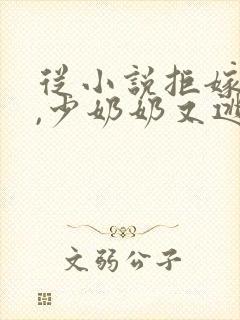 從小說拒嫁
,少奶奶又逃
文弱公子